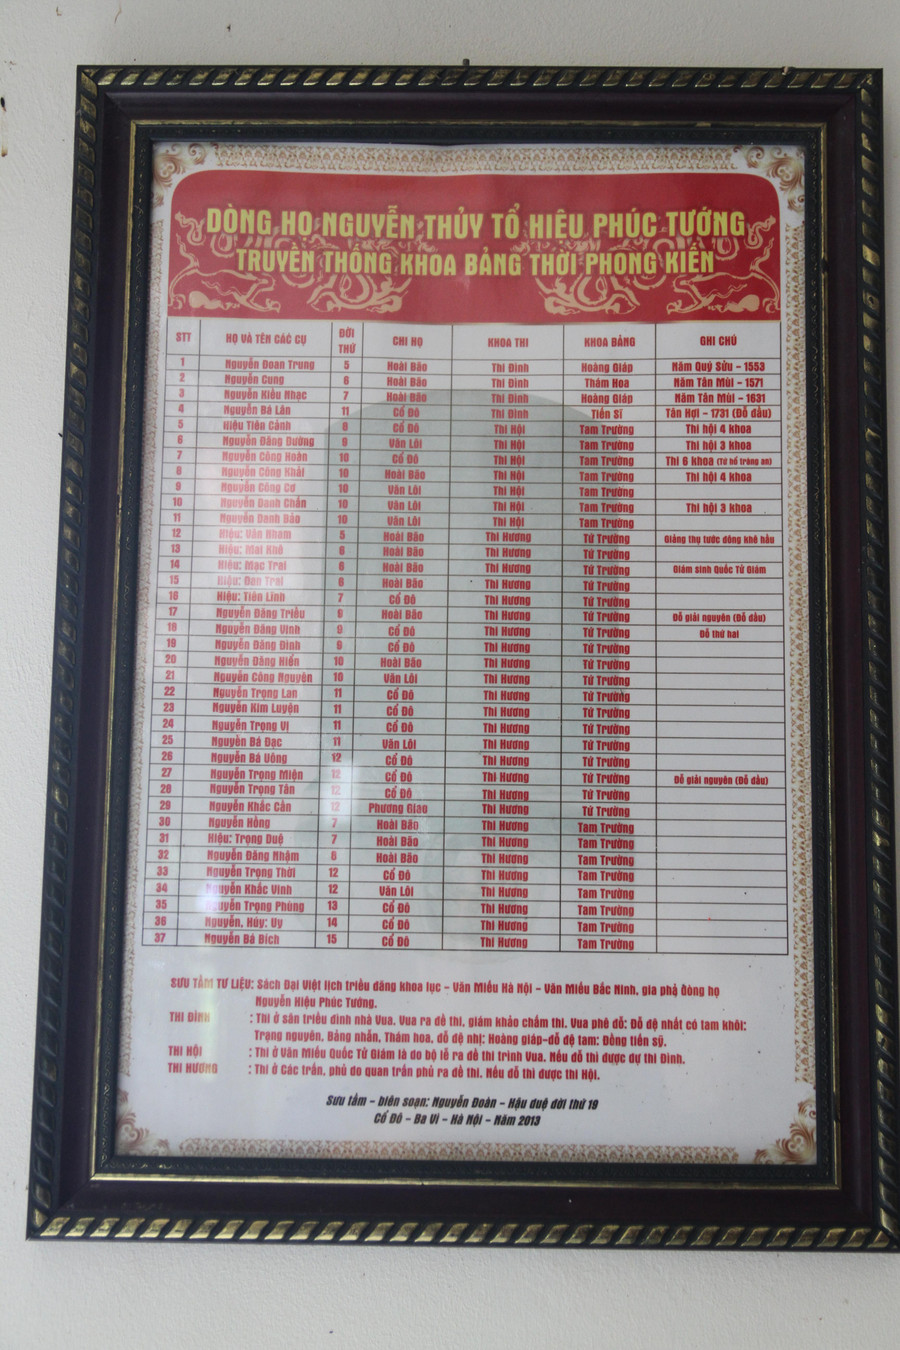 DÒNG HỌ NGUYỄN THỦY TỔ HIỆU PHÚC TƯỚNG
TRUYỀN THỐNG KHOA BẢNG THỜI PHONG KIẾN
STT HỌ VÀ TÊN CÁC CỤ ĐỜI THỨ CHI HỌ KHOA THI KHOA BẢNG GHI CHÚ
1 Nguyễn Doan Trung 5 Hoài Bão Thi Đình Hoàng Giáp Năm Quý Sửu - 1553
2 Nguyễn Cung 6 Hoài Bão Thi Đình Thám Hoa Năm Tân Mùi - 1571
3 Nguyễn Kiều Nhạc 7 Hoài Bão Thi Đình Hoàng Giáp Năm Tân Mùi - 1631
4 Nguyễn Bá Lân 11 Cổ Đô Thi Đình Tiến Sĩ Tân Hợi - 1731 (Đỗ đầu)
5 Hiệu Tiên Cảnh 8 Cổ Đô Thi Hội Tam Trường Thi hội 4 khoa
6 Nguyễn Đăng Dường 9 Vân Lôi Thi Hội Tam Trường Thi hội 3 khoa
7 Nguyễn Công Hoàn 10 Cổ Đô Thi Hội Tam Trường Thi 6 khoa (Tứ hổ tràng an)
8 Nguyễn Công Khải 10 Hoài Bão Thi Hội Tam Trường Thi hội 4 khoa
9 Nguyễn Công Cơ 10 Vân Lôi Thi Hội Tam Trường
10 Nguyễn Danh Chấn 10 Vân Lôi Thi Hội Tam Trường Thi hội 3 khoa
11 Nguyễn Danh Bảo 10 Vân Lôi Thi Hội Tam Trường
12 Hiệu: Vân Nham 5 Hoài Bão Thi Hương Tứ Trường Giảng thụ tước đông khê hầu
13 Hiệu: Mai Khê 6 Hoài Bão Thi Hương Tứ Trường
14 Hiệu: Mạc Trai 6 Hoài Bão Thi Hương Tứ Trường Giám sinh Quốc Tử Giám
15 Hiệu: Đôn Trai 6 Hoài Bão Thi Hương Tứ Trường
16 Hiệu: Tiên Linh 7 Cổ Đô Thi Hương Tứ Trường
17 Nguyễn Đăng Triều 9 Hoài Bão Thi Hương Tứ Trường Đỗ giải nguyên (Đỗ đầu)
18 Nguyễn Đăng Vinh 9 Cổ Đô Thi Hương Tứ Trường Đỗ thứ hai
19 Nguyễn Đăng Đình 9 Cổ Đô Thi Hương Tứ Trường
20 Nguyễn Đăng Hiển 10 Hoài Bão Thi Hương Tứ Trường
21 Nguyễn Công Nguyên 10 Vân Lôi Thi Hương Tứ Trường
22 Nguyễn Trọng Lan 11 Cổ Đô Thi Hương Tứ Trường
23 Nguyễn Kim Luyện 11 Cổ Đô Thi Hương Tứ Trường
24 Nguyễn Trọng Vị 11 Cổ Đô Thi Hương Tứ Trường
25 Nguyễn Bá Đạc 11 Vân Lôi Thi Hương Tứ Trường
26 Nguyễn Bá Uông 12 Cổ Đô Thi Hương Tứ Trường
27 Nguyễn Trọng Miện 12 Cổ Đô Thi Hương Tứ Trường Đỗ giải nguyên (Đỗ đầu)
28 Nguyễn Trọng Tân 12 Cổ Đô Thi Hương Tứ Trường
29 Nguyễn Khắc Cẩn 12 Phương Giao Thi Hương Tứ Trường
30 Nguyễn Hồng 7 Hoài Bão Thi Hương Tam Trường
31 Hiệu: Trọng Duệ 7 Hoài Bão Thi Hương Tam Trường
32 Nguyễn Đăng Nhậm 8 Hoài Bão Thi Hương Tam Trường
33 Nguyễn Trọng Thời 12 Cổ Đô Thi Hương Tam Trường
34 Nguyễn Khắc Vinh 12 Vân Lôi Thi Hương Tam Trường
35 Nguyễn Trọng Phùng 13 Cổ Đô Thi Hương Tam Trường
36 Nguyễn, Húy: Uy 14 Cổ Đô Thi Hương Tam Trường
37 Nguyễn Bá Bích 15 Cổ Đô Thi Hương Tam Trường
SƯU TẦM TƯ LIỆU: Sách Đại Việt lịch triều đăng khoa lục - Văn Miếu Hà Nội - Văn Miếu Bắc Ninh, gia phả dòng họ
Nguyễn Hiệu Phúc Tướng.
THI ĐÌNH : Thi ở sân triều đình nhà Vua, Vua ra đề thi, giám khảo chấm thi. Vua phê đỗ: Đỗ đệ nhất có tam khôi:
Trạng nguyên, Bảng nhãn, Thám hoa, đỗ đệ nhị: Hoàng giáp-đỗ đệ tam: Đồng tiến sỹ.
THI HỘI : Thi ở Văn Miếu Quốc Tử Giám là do bộ lễ ra đề thi trình Vua. Nếu đỗ thì được dự thi Đình.
THI HƯƠNG : Thi ở Các trấn, phủ do quan trấn phủ ra đề thi. Nếu đỗ thì được thi Hội.
Sưu tầm - biên soạn: Nguyễn Đoàn - Hậu duệ đời thứ 19
Cổ Đô - Ba Vì - Hà Nội - Năm 2013